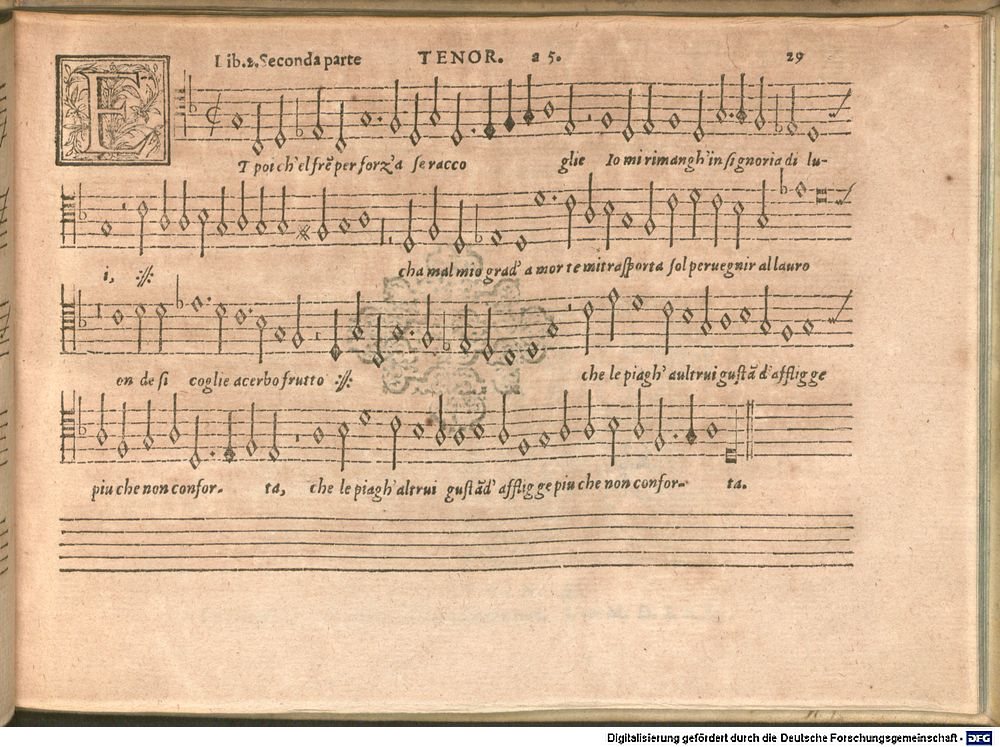 Lib.2.Seconda parte TENOR. a 5. 29
ET poi ch'el frē per forz'a se racco glie Io mi rimangh' in signoria di lu-
i, :||: cha mal mio grad' a mor te mi trasporta sol per uegnir al lauro
on de si coglie acerbo frutto :||: che le piagh' aultrui gustād' afflig ge
piu che non confor- ta, che le piagh' altrui gustād' afflig ge piu che non confor- ta.
Digitalisierung gefördert durch die Deutsche Forschungsgemeinschaft - DFG